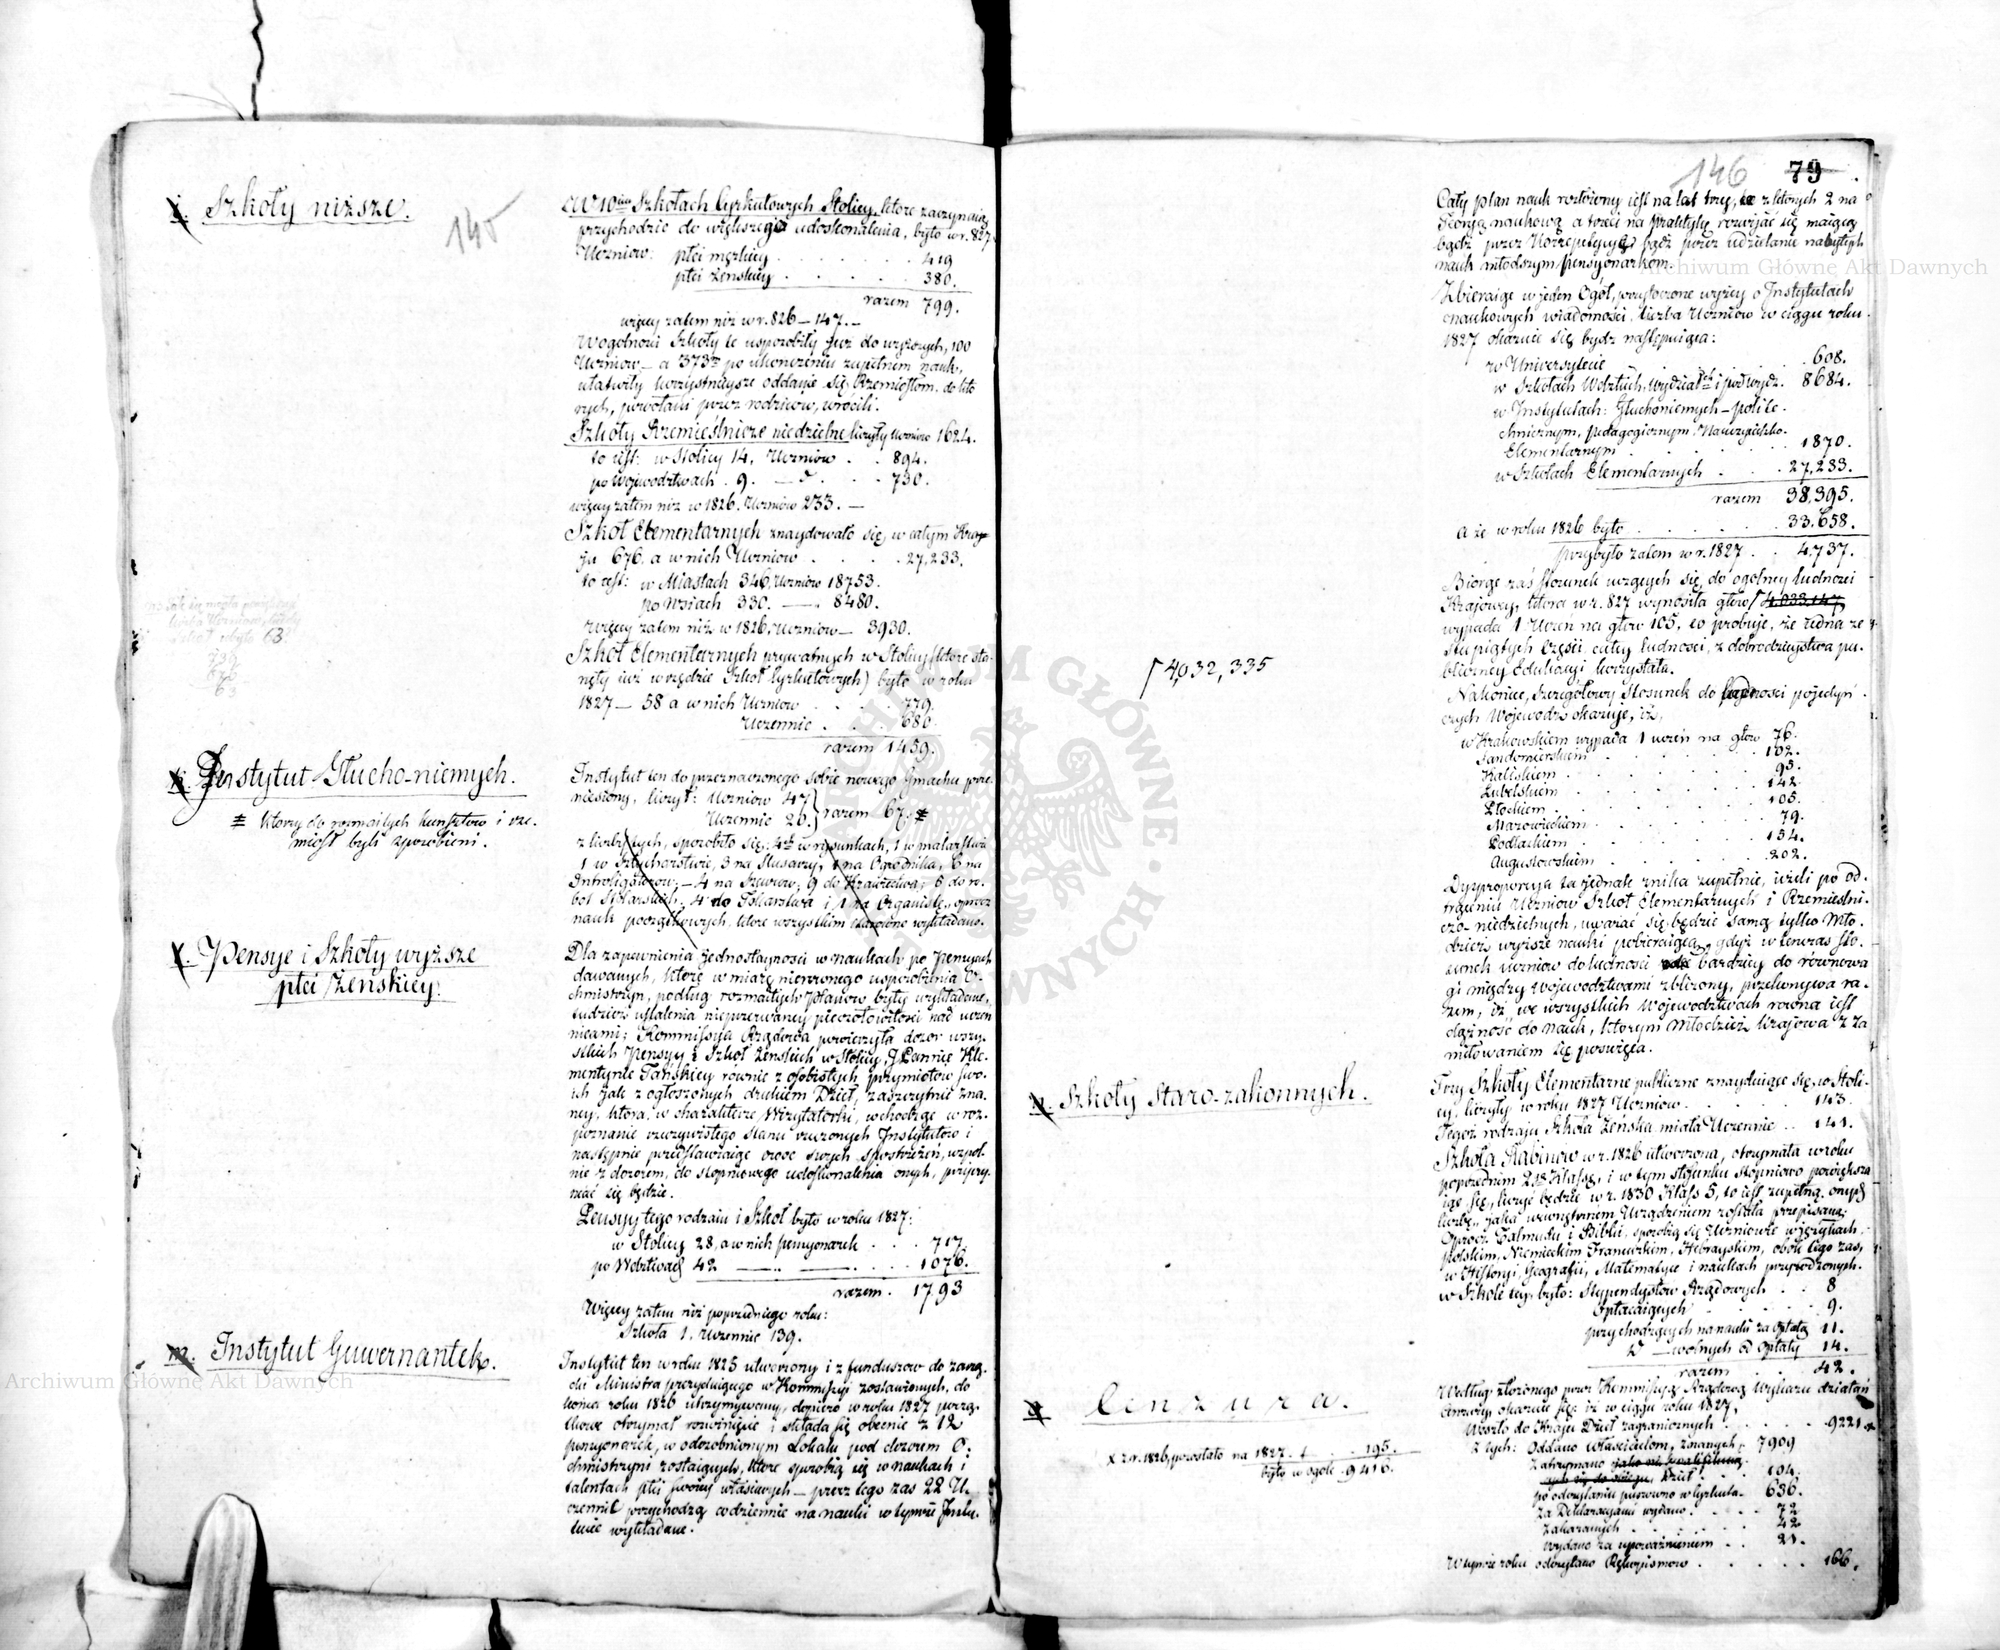 145
i. Szkoły niższe.
W 10iu Szkołach Cyrkułowych Stolicy, które zaczynaią
przychodzić do większego udoskonalenia, było w r. 827
Uczniow: płci męzkiey . . . . . . 419
płci żenskiey . . . . . 380.
razem 799.
więcey zatem niż w r. 826 – 147. –
Wogolnosci Szkoły te usposobiły już do wyższych, 100
Uczniow – a 373m po ukonczeniu zupełnem nauk,
ułatwiły korzystnieysze oddanie się Rzemiosłom, do któ
rych, powołani przez rodzicow, wrócili.
Szkoły Rzemieślnicze niedzielne liczyły Uczniow 1624.
to iest: w Stolicy 14, Uczniow . . 894.
po Woiewodztwach . 9. — d° . . . 730.
więcey zatem niż w 1826. Uczniow 233. –
Szkoł Elementarnych znaydowało się, w całym Kra
ju 676. a w nich Uczniow . . . . 27,233.
to iest: w Miastach 346, Uczniow 18753.
po Wsiach 330. —— 8480.
Więcey zatem niż w 1826, Uczniow – 3930.
Szkoł Elementarnych prywatnych w Stolicy (które sta-
nęły iuż w rzędzie Szkoł Cyrkułowych) było w roku
1827 – 58 a w nich Uczniow . . . . 779.
Uczennic . . . . 680.
razem 1459.
k. Instytut Głucho-niemych.
# którzy do rozmaitych kunsztow i rze.
miosł byli sposobieni.
Instytut ten do przeznaczonego sobie nowego Gmachu prze
niesiony, liczył: Uczniow 47
Uczennic 20. } razem 67. #
z liczby tych, sposobiło się: 4ch w rysunkach, 1 w malarstwie
1 w Sztycharstwie, 3 na Slusarzy, 1 na Ogrodnika, 6 na
Introligatorow, – 4 na Szewcow, 9 do Krawiectwa; 6 do ro.
bot Stolarskich, 4 do Tokarstwa i 1 na Organistę, oprocz
nauk początkowych, które wszystkim
l. Pensye i Szkoły wyższe
płci Żenskiey.
Dla zapewnienia jednostayności w naukach po Pensyach
dawanych, które w miarę nierownego usposobienia O-
chmistrzyn, podług rozmaitych planow były wykładane,
tudzież ustalenia nieprzerwaney pieczołowitości nad uczen
nicami; Kommissya Rządowa powierzyła dozor wszy.
stkich Pensyy i Szkoł żenskich w Stolicy, J. Pannie Kle.
mentynie Tańskiey równie z osobistych przymiotow swo.
ich jak z ogłoszonych drukiem Dzieł, zaszczytnie zna.
ney, która, w charakterze Wizytatorki, wchodząc w roz.
poznanie rzeczywistego stanu rzeczonych Instytutow i
następnie przedstawiaiąc owoc swych spostrzeżeń, wspól.
nie z dozorem, do stopniowego udoskonalenia onych, przyczy.
niać się będzie.
Pensyy tego rodzaiu i Szkoł było w roku 1827:
w Stolicy 28, a w nich pensyonarek . . . 717.
po Wdztwach 42 —— —— . . . 1076.
razem . 1793
Więcey zatem niż poprzedniego roku:
Szkoła 1, Uczennic 139.
m. Instytut Guwernantek.
Instytut ten w roku 1825 utworzony i z funduszow do zarzą.
du Ministra prezyduiącego w Kommissyi zostawionych, do
konca roku 1826 utrzymywany, dopiero w roku 1827 porzą.
dkowe otrzymał rozwinięcie i składa się obecnie z 12
pensyonarek, w odosobnionym Lokalu pod dozorem O:
chmistrzyni zostaiących, które sposobią się w naukach i
talentach płci swoiey właściwych – przez tego zas 22 U.
czennic przychodzą codziennie na nauki w tymże Insty.
tucie wykładane.
146 79
Cały plan nauk rozłożony iest na lat trzy, z których 2 na
Teoryą naukową a trzeci na praktykę rozwijać się maiącą
bądź przez Korrepetycye bądź przez udzielanie nabytych
nauk młodszym pensyonarkom.
Zbieraiąc w jeden Ogół, przytoczone wyżey o Instytutach
naukowych wiadomości, liczba Uczniów w ciągu roku
1827 okazuie się bydź następuiąca:
w Uniwersytecie . . . . . 608.
w Szkołach Wdzkich, wydziałch i podwydz. 8684.
w Instytutach: Głuchoniemych – polite.
chnicznym, pedagogicznym, Nauczycielsko.
Elementarnym . . . . . . 1870.
w Szkołach Elementarnych . . . 27,233.
razem 38,395.
a że w roku 1826 było . . . . . 33,658.
przybyło zatem w r. 1827 . . 4,737.
Biorąc zaś stosunek uczących się, do ogolney ludności
Kraiowey, która w r. 827 wynosiła głow 4,033,147,
wypada 1 Uczeń na głow 105, co probuje, że iedna ze
stupiątych części, całey ludności, z dobrodzieystwa pu-
bliczney Edukacyi korzystała.
4,032,335
Nakoniec, szczegółowy Stosunek do ludności pojedyn
czych Woiewodz okazuje, iż,
w Krakowskiem wypada 1 uczeń na głow 76.
Sandomierskiem . . . . . 102.
Kaliskiem . . . . . 95.
Lubelskiem . . . . . 142.
Płockiem . . . . . 105.
Mazowieckiem . . . . . 79.
Podlaskiem . . . . . 154.
Augustowskiem . . . . . 202.
Dysproporcya ta jednak znika zupełnie, ieżeli po od-
trąceniu Uczniow Szkoł Elementarnych i Rzemieślni-
czo-niedzielnych, uważać się będzie samą tylko Mło-
dzież wyższe nauki pobieraiącą, gdyż wtenczas sto-
sunek uczniow do ludności bardziey do równowa
gi między Woiewodztwami zbliżony, przekonywa ra-
zem, iż we wszystkich Woiewodztwach rowna iest
dążność do nauk, ktorym Młodzież krajowa z za
miłowaniem się poswięca.
n. Szkoły Staro-zakonnych.
Trzy Szkoły Elementarne publiczne znayduiące się w Stoli
cy, liczyły w roku 1827 Uczniow . . . . 143.
Tegoż rodzaju Szkoła Żeńska miała Uczennic . . 141.
Szkoła Rabinow w r. 1826 utworzona, otrzymała w roku
poprzednim 2gą Klassę, i w tym stosunku stopniowo powiększa
iąc się, liczyć będzie w r. 1830 Klass 5, to iest zupełną onych
liczbę, jaka wewnętrznem Urządzeniem została przepisaną;
Oprócz Talmudu i Biblii, sposobią się Uczniowie w językach,
polskim, Niemieckim, Francuzkim, Hebrayskim, obok tego zas,
w Historyi, Geografii, Matematyce i naukach przyrodzonych.
w Szkole tey było: Stypendystow Rządowych . . 8
Opłacaiących . . . . . 9.
przychodzących na nauki za opłatą 11.
d° — wolnych od opłaty 14.
razem 42.
o. Cenzura.
x z r. 1826, pozostało na 1827 . . . 195.
było w ogole . 9416.
Według złożonego przez Kommissyą Rządową Wykazu działań
Cenzury, okazuie się: iż w ciągu roku 1827,
Weszło do Kraju Dzieł zagranicznych . . . . 9221 x
z tych: Oddano właścicielom, znanych, 7909
Zatrzymano
Dzieł . . . 104.
po odczytaniu puszczono w Cyrkula. 636.
za Deklaracyami wydano . . . . 72
Zakazanych . . . . . 42
Wydano za upoważnieniem . . 21.
W tymże roku odczytano Rękopismow . . . . . . 166.
Archiwum Główne Akt Dawnych
Archiwum Główne Akt Dawnych
ARCHIWUM GŁÓWNE AKT DAWNYCH